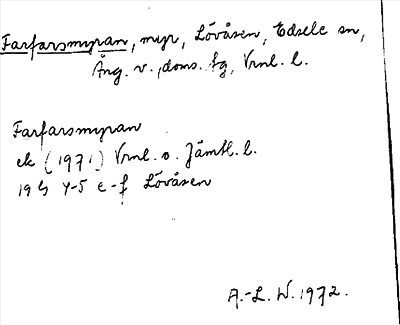 Farfarsmyran, myr, Lövåsen, Edsele sn,
Ång. v., doms. fg, Vrnl. l.
Farfarsmyran
ek (1971) Vrnl. o. Jämtl. l.
19 G 4-5 e-f Lövåsen
A.-L. W. 1972.